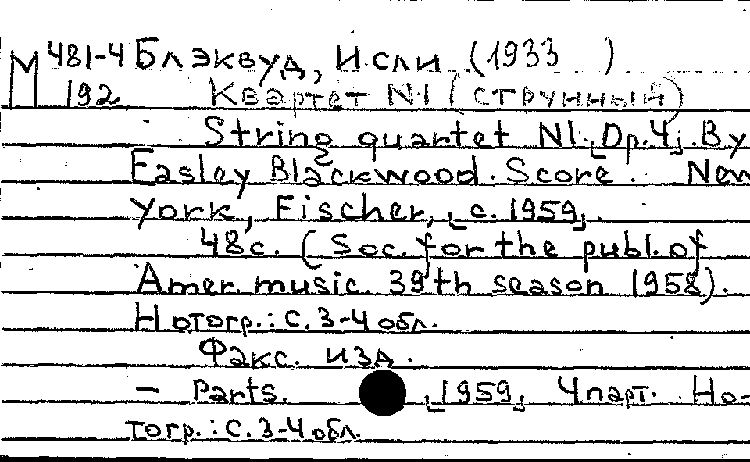 М 481-4 Блэквуд, Исли (1933 )
192 Квартет N1 (струнный)
String quartet N1.[Op.4]. By
Easley Blackwood. Score. New
York, Fischer, [c. 1959].
48с. (Soc. for the publ. of
Amer. music. 39th season 1958).
Нотогр.: С. 3-4 обл.
Факс. изд.
— Parts. [1959] 4 парт. Но-
тогр.: С. 3-4 обл.